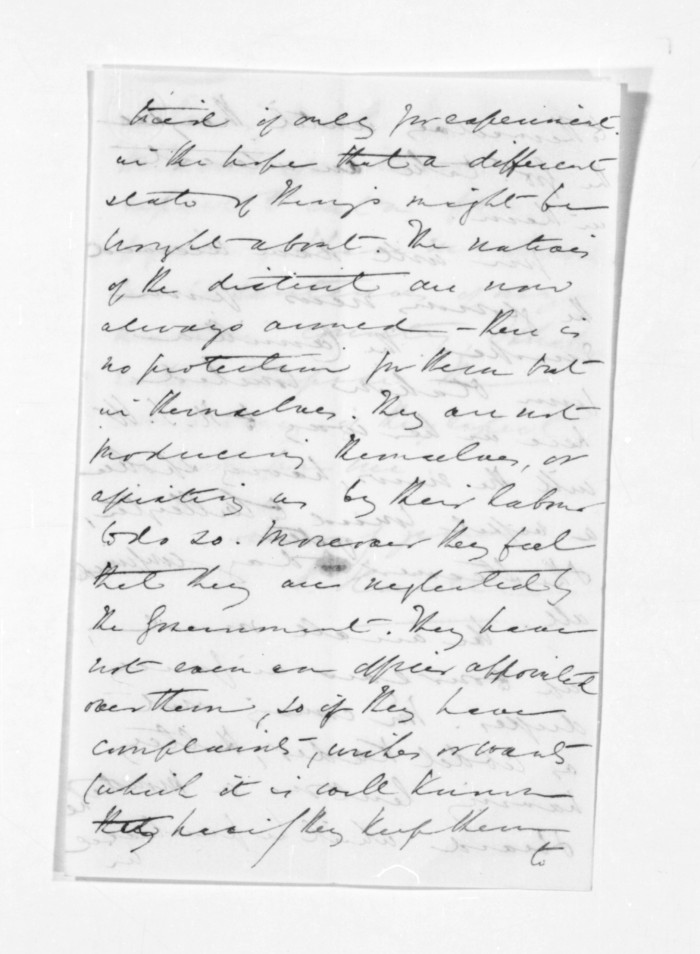 tried if only for experiment.
in the hope that a different
state of things might be
brought about. The natives
of the district are now
always armed – there is
no protection for them but
in themselves. They are not
producing themselves, or
assisting us by their labour
to do so. Moreover they feel
that they are neglected by
the Government. They have
not even an officer appointed
over them, so if they have
complaints, wishes or wants
(which it is well known
they have) they keep them
to